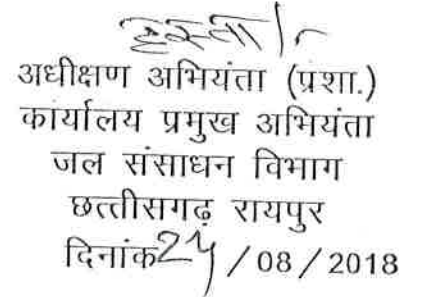 हस्ता/-
अधीक्षण अभियंता (प्रशा.)
कार्यालय प्रमुख अभियंता
जल संसाधन विभाग
छत्तीसगढ़ रायपुर
दिनांक 24/08/2018